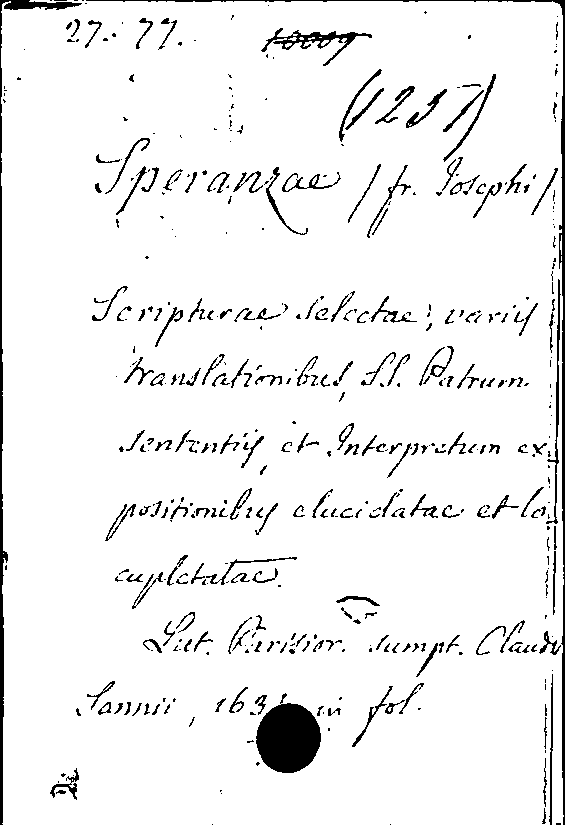 27. 77. 10009
(1237)
Speranzae / fr. Josephi /
Scripturae selectae, variis
translationibus, S.S. Patrum
sententiis, et Interpretum ex
positionibus elucidatae et lo
cupletatae.
Lut. Parisior. sumpt. Claudii
Sonnii, in fol.